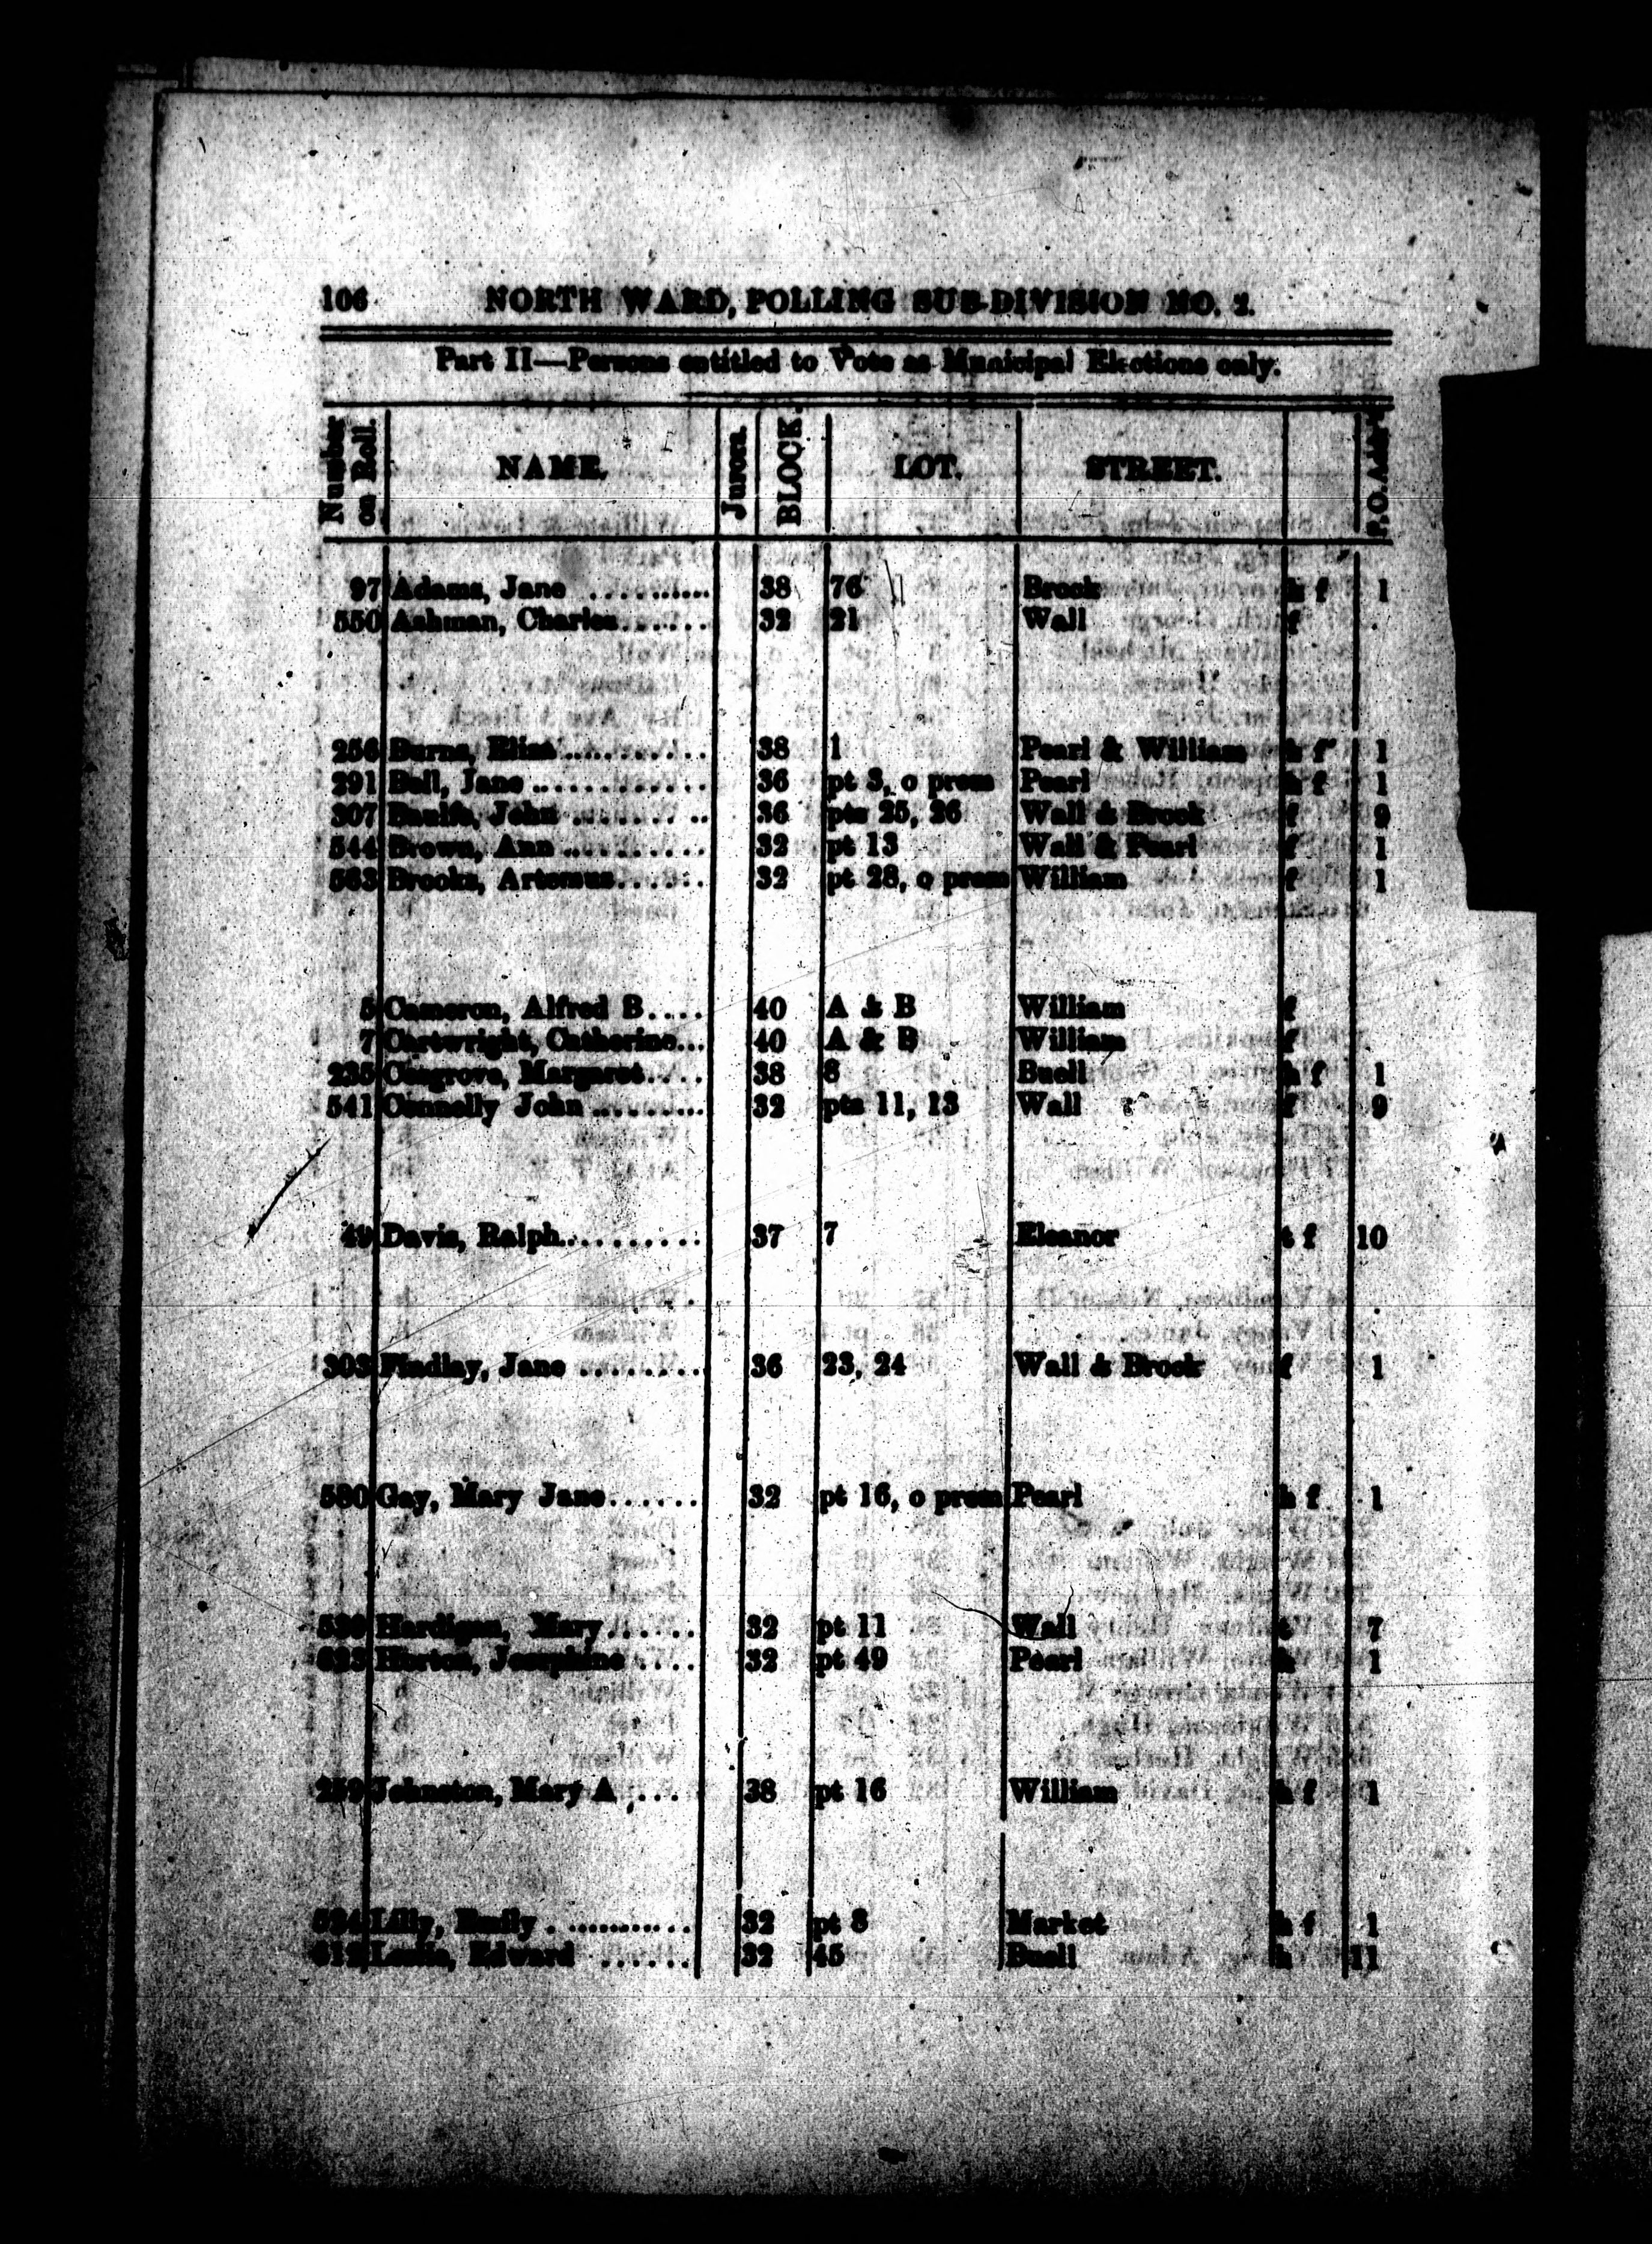 106 NORTH WARD, POLLING SUB-DIVISION NO.
Part II—Persons entitled to Vote as Municipal Elections only.
Number on Roll. NAME. Jurors. BLOCK. LOT. STREET. P.O. Add's
97 Adams, Jane .......... 38 76 Brock h f 1
550 Ashman, Charles...... 32 21 Wall f
256 Burns, Eliza .......... 38 1 Pearl & William h f 1
291 Bell, Jane .......... 36 pt 3, o prem Pearl h f 1
307 John ......... 36 pts 25, 26 Wall & Brock f 9
544 Brown, Ann .......... 32 pt 13 Wall & Pearl f 1
563 Brooks, Artemus...... 32 pt 28, o prem William f 1
5 Cameron, Alfred B.... 40 A & B William f
7 Cartwright, Catherine... 40 A & B William f
235 Cosgrove, Margaret.... 38 8 Buell h f 1
541 Connelly John .......... 32 pts 11, 13 Wall f 9
49 Davis, Ralph.......... 37 7 Eleanor t f 10
303 Findlay, Jane ........ 36 23, 24 Wall & Brock f 1
580 Gay, Mary Jane...... 32 pt 16, o prem Pearl h f 1
Hardigan, Mary...... 32 pt 11 Wall t 7
623 Horton, Josephine .... 32 pt 49 Pearl h 1
259 Johnston, Mary A .... 38 pt 16 William h f 1
534 Lilly, Emily .......... 32 pt 8 Market h f 1
612 Leslie, Edward ...... 32 45 Buell h 11